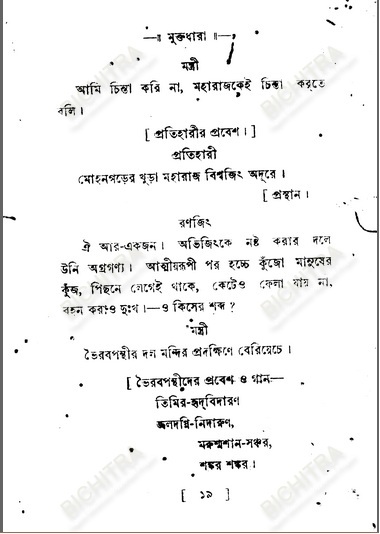 —॥ মুক্তধারা ॥—
মন্ত্রী
আমি চিন্তা করি না, মহারাজকেই চিন্তা করতে
বলি।
[ প্রতিহারীর প্রবেশ। ]
প্রতিহারী
মোহনগড়ের খুড়া মহারাজ বিশ্বজিৎ অদূরে।
[ প্রস্থান।
রণজিৎ
ঐ আর-একজন। অভিজিৎকে নষ্ট করার দলে
উনি অগ্রগণ্য। আত্মীয়রূপী পর হচ্চে কুঁজো মানুষের
কুঁজ, পিছনে লেগেই থাকে, কেটেও ফেলা যায় না,
বহন করাও দুঃখ।—ও কিসের শব্দ?
মন্ত্রী
ভৈরবপন্থীর দল মন্দির প্রদক্ষিণে বেরিয়েচে।
[ ভৈরবপন্থীদের প্রবেশ ও গান—
তিমির-হৃদ্‌বিদারণ
জ্বলদগ্নি-নিদারুণ,
মরুশ্মশান-সঞ্চর,
শঙ্কর শঙ্কর।
[ ১৯ ]
BICHITRA
BICHITRA
BICHITRA
BICHITRA